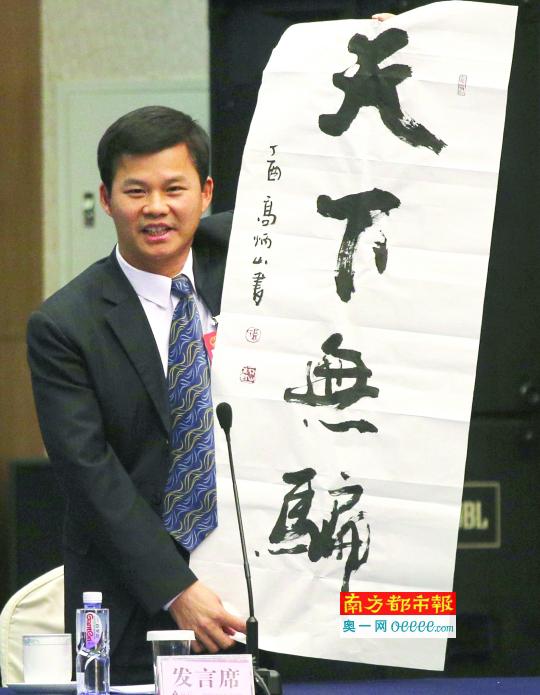 天下無騙
丁酉 高炳山書
南方都市報
奥一网 oeeee.com
发言席
JBL
Ganten